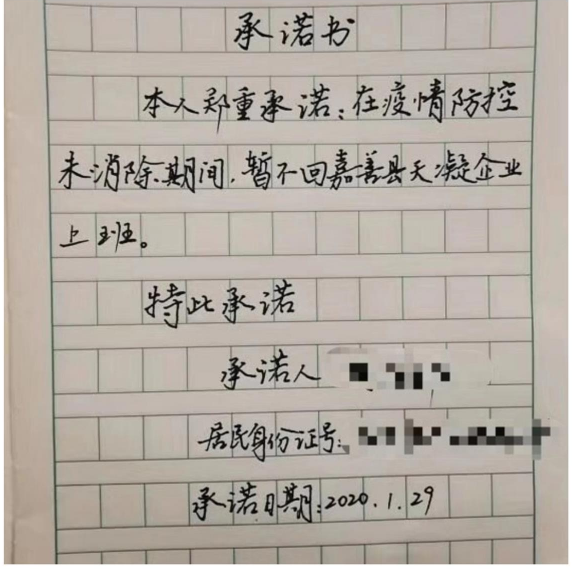 承诺书
本人郑重承诺：在疫情防控
未消除期间，暂不回嘉善县天凝企业
上班。
特此承诺
承诺人
居民身份证号：
承诺日期：2020.1.29